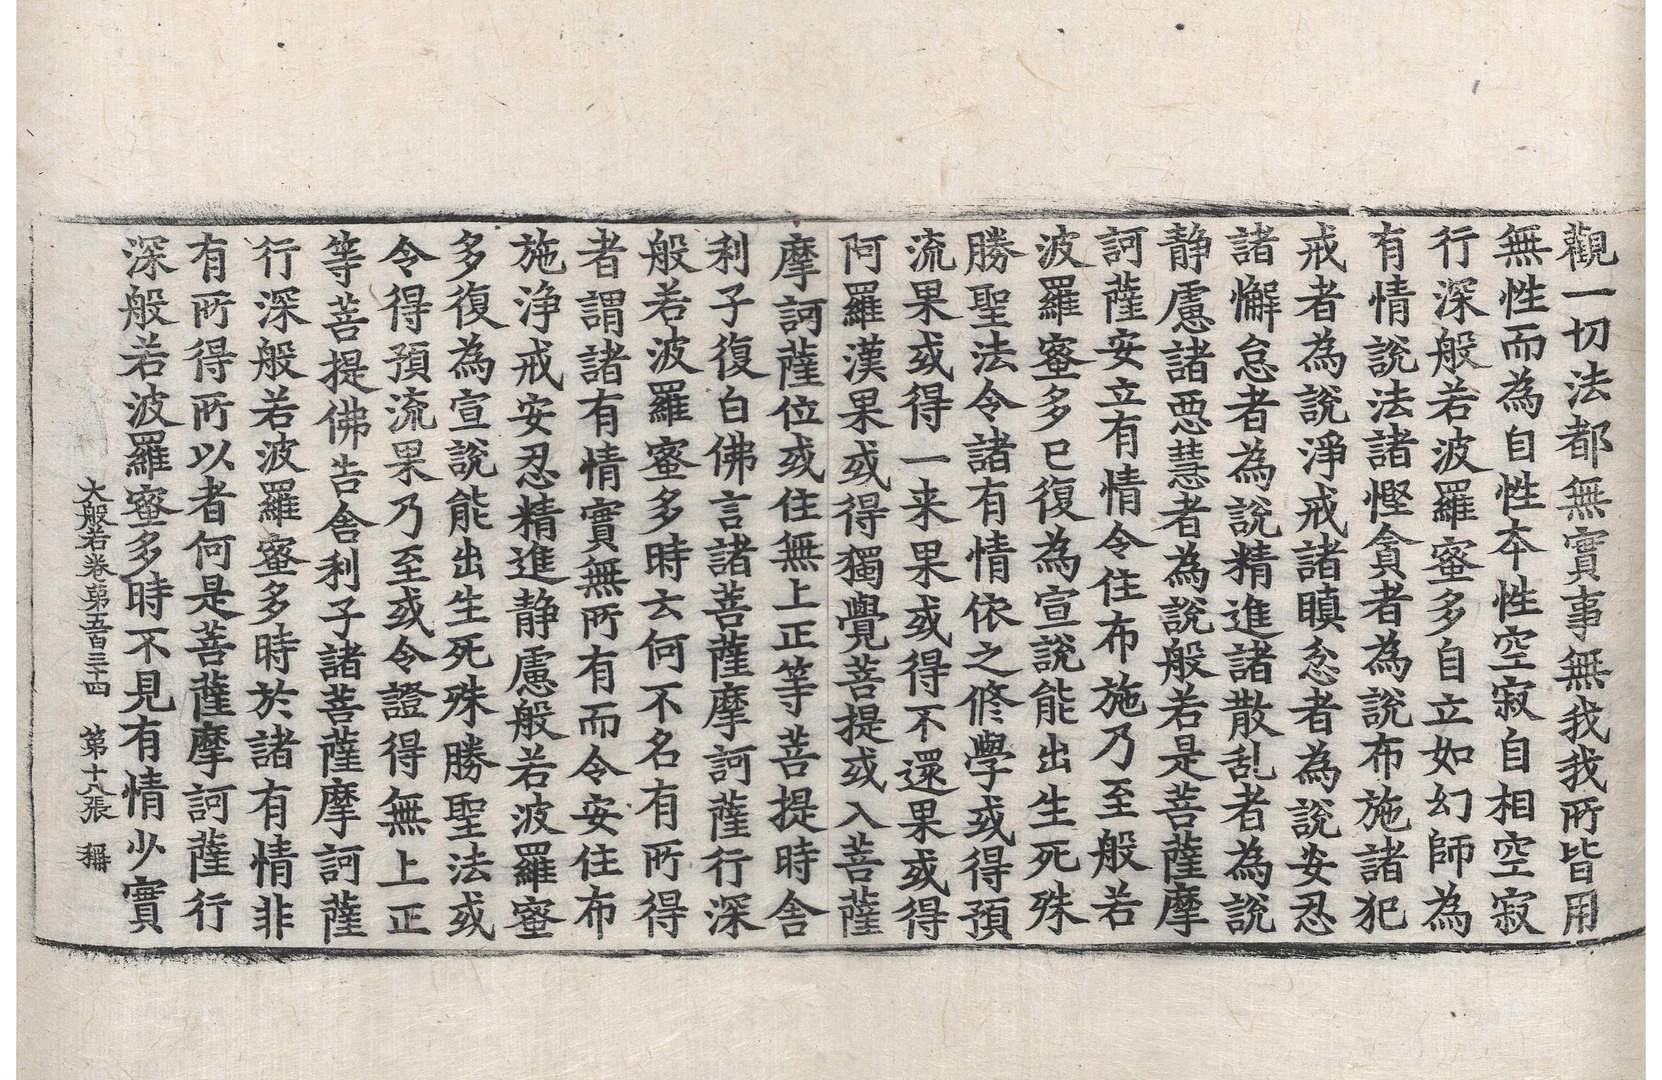 觀一切法都無實事無我我所皆用
無性而為自性本性空寂自相空寂
行深般若波羅蜜多自立如幻師為
有情說法諸慳貪者為說布施諸犯
戒者為說淨戒諸瞋忿者為說安忍
諸懈怠者為說精進諸散乱者為說
静慮諸惡慧者為說般若是菩薩摩
訶薩安立有情令住布施乃至般若
波羅蜜多已復為宣說能出生死殊
勝聖法令諸有情依之修學或得預
流果或得一来果或得不還果或得
阿羅漢果或得獨覺菩提或入菩薩
摩訶薩位或住無上正等菩提時舍
利子復白佛言諸菩薩摩訶薩行深
般若波羅蜜多時云何不名有所得
者謂諸有情實無所有而令安住布
施浄戒安忍精進静慮般若波羅蜜
多復為宣說能出生死殊勝聖法或
令得預流果乃至或令證得無上正
等菩提佛告舍利子諸菩薩摩訶薩
行深般若波羅蜜多時於諸有情非
有所得所以者何是菩薩摩訶薩行
深般若波羅蜜多時不見有情少實
大般若卷第五百三十四 第十八張 稱